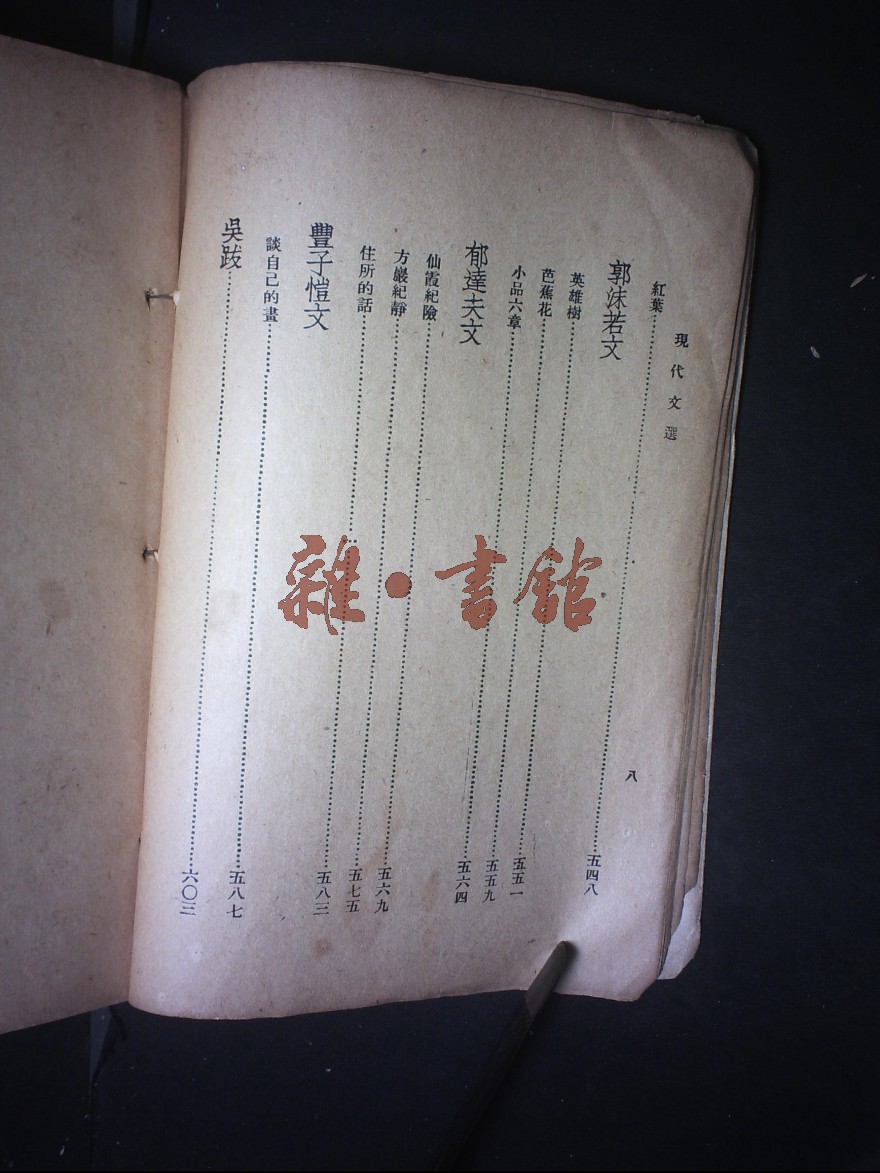 現代文選
八
紅葉……五四八
郭沫若文
英雄樹……五五一
芭蕉花……五五九
小品六章……五六四
郁達夫文
仙霞紀險……五六九
方巖紀靜……五七五
住所的話……五八三
豐子愷文
談自己的畫……五八七
吳跋……六〇三
雜·書館